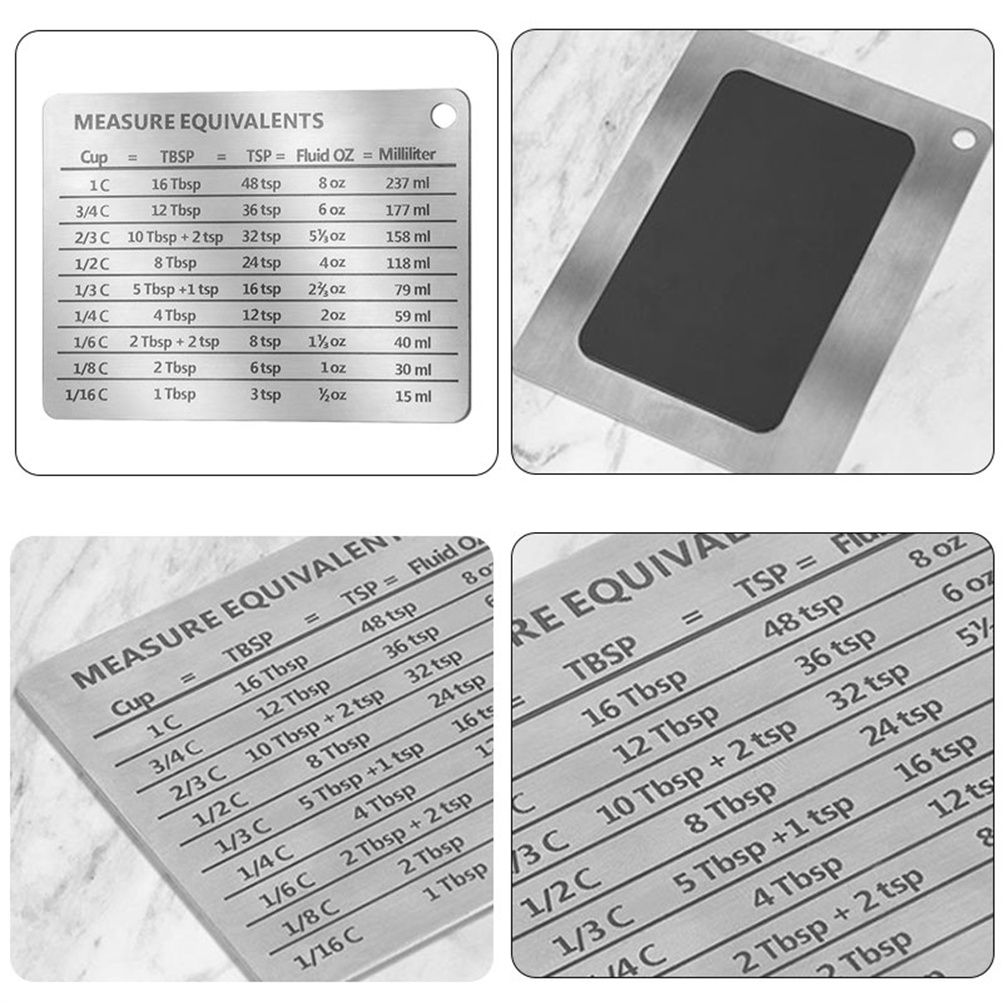 MEASURE EQUIVALENTS
Cup = TBSP = TSP = Fluid OZ = Milliliter
1 C 16 Tbsp 48 tsp 8 oz 237 ml
3/4 C 12 Tbsp 36 tsp 6 oz 177 ml
2/3 C 10 Tbsp + 2 tsp 32 tsp 5⅓ oz 158 ml
1/2 C 8 Tbsp 24 tsp 4 oz 118 ml
1/3 C 5 Tbsp +1 tsp 16 tsp 2⅔ oz 79 ml
1/4 C 4 Tbsp 12 tsp 2 oz 59 ml
1/6 C 2 Tbsp + 2 tsp 8 tsp 1⅓ oz 40 ml
1/8 C 2 Tbsp 6 tsp 1 oz 30 ml
1/16 C 1 Tbsp 3 tsp ½ oz 15 ml
MEASURE EQUIVALENT
Cup = TBSP = TSP = Fluid O
1 C 16 Tbsp 48 tsp 8 o
3/4 C 12 Tbsp 36 tsp 6
2/3 C 10 Tbsp + 2 tsp 32 tsp
1/2 C 8 Tbsp 24 tsp
1/3 C 5 Tbsp +1 tsp 16 ts
1/4 C 4 Tbsp 1
1/6 C 2 Tbsp + 2 tsp
1/8 C 2 Tbsp
1/16 C 1 Tbsp
RE EQUIVAL
= TBSP = TSP = Flu
16 Tbsp 48 tsp 8 oz
12 Tbsp 36 tsp 6 oz
C 10 Tbsp + 2 tsp 32 tsp 5
/3 C 8 Tbsp 24 tsp
1/2 C 5 Tbsp +1 tsp 16 tsp
1/3 C 4 Tbsp 12 ts
1/4 C 2 Tbsp + 2 tsp 8
2 Tbsp